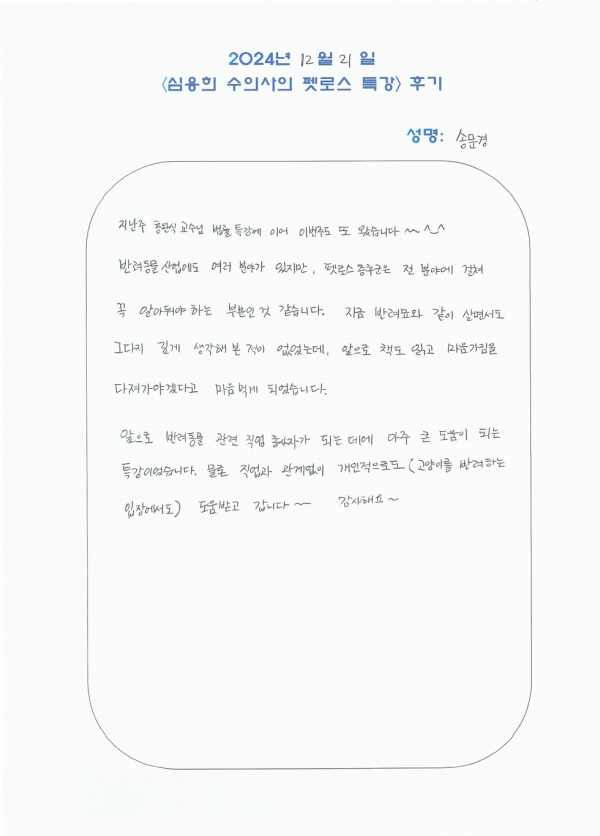 2024년 12월 21일
<심용희 수의사의 펫로스 특강> 후기
성명: 송문경
지난주 홍완식 교수님 법률특강에 이어 이번주도 또 왔습니다 ~~ ^_^
반려동물 산업에도 여러 분야가 있지만, 펫로스 증후군은 전 분야에 걸쳐
꼭 알아둬야 하는 부분인 것 같습니다. 지금 반려묘와 같이 살면서도
그다지 깊게 생각해 본 적이 없었는데, 앞으로 책도 읽고 마음가짐을
다져가야겠다고 마음먹게 되었습니다.
앞으로 반려동물 관련 직업 종사자가 되는 데에 아주 큰 도움이 되는
특강이었습니다. 물론 직업과 관계없이 개인적으로도 (고양이를 반려하는
입장에서도) 도움받고 갑니다 ~~ 감사해요 ~